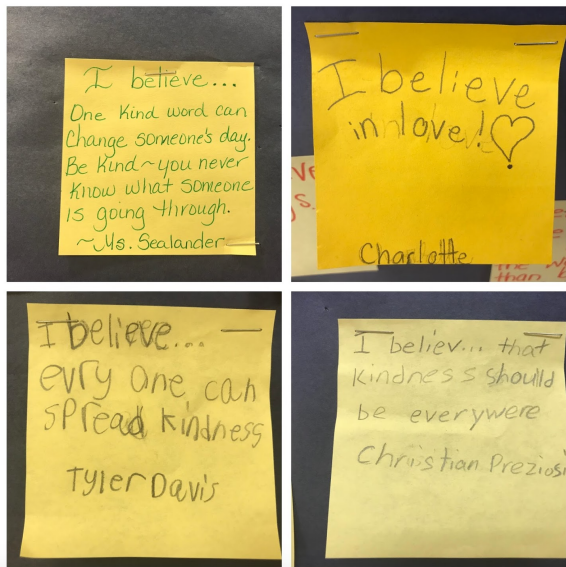 I believe...
One Kind word can
Change someone's day.
Be Kind~you never
Know what someone
is going through.
~Ms. Sealander
I believe
in love!
Charlotte
I believe...
evry one can
spread kindness
Tyler Davis
I believ... that
kindness should
be everywere
Christian Preziosi
than